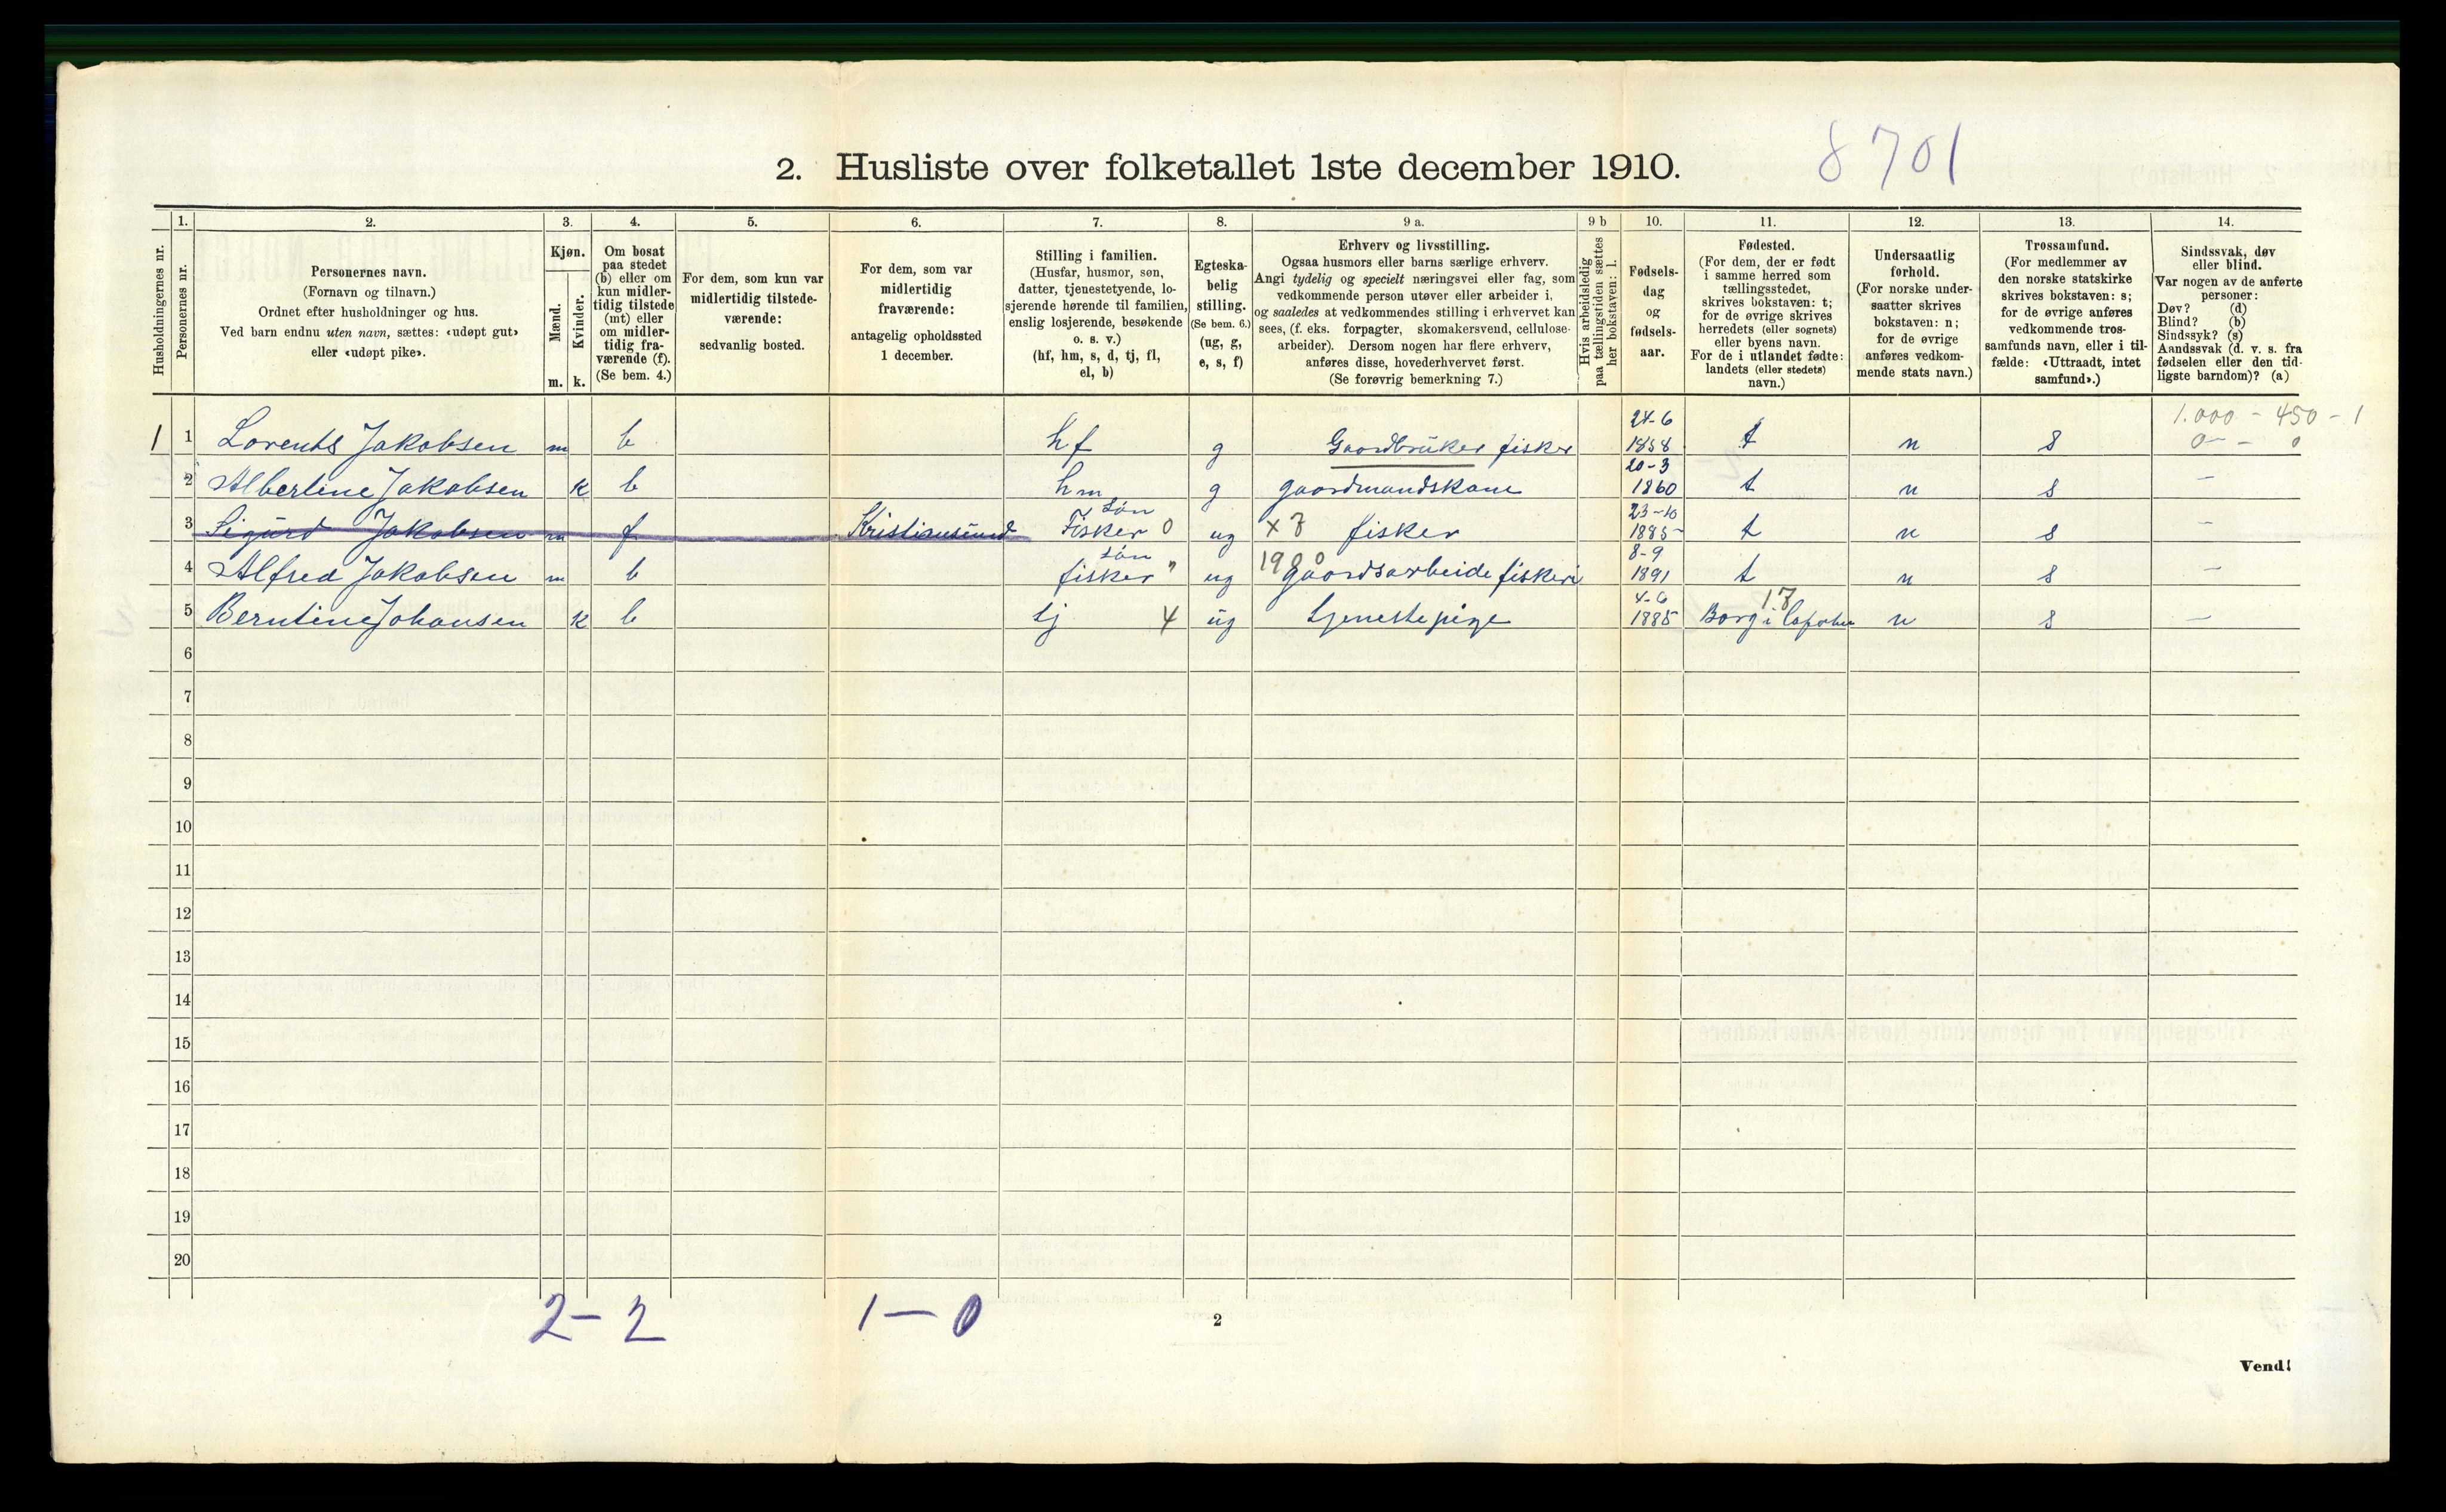 8701
2. Husliste over folketallet 1ste december 1910.
Husholdningernes nr.
1. Personernes nr.
2. Personernes navn.
(Fornavn og tilnavn.)
Ordnet efter husholdninger og hus.
Ved barn endnu uten navn, sættes: «udøpt gut»
eller «udøpt pike».
3. Kjøn.
Mænd. m.
Kvinder. k.
4. Om bosat
paa stedet
(b) eller om
kun midler-
tidig tilstede
(mt) eller
om midler-
tidig fra-
værende (f).
(Se bem. 4.)
5. For dem, som kun var
midlertidig tilstede-
værende:
sedvanlig bosted.
6. For dem, som var
midlertidig
fraværende:
antagelig opholdssted
1 december.
7. Stilling i familien.
(Husfar, husmor, søn,
datter, tjenestetyende, lo-
sjerende hørende til familien,
enslig losjerende, besøkende
o. s. v.)
(hf, hm, s, d, tj, fl,
el, b)
8. Egteska-
belig
stilling.
(Se bem. 6.)
(ug, g,
e, s, f)
9 a. Erhverv og livsstilling.
Ogsaa husmors eller barns særlige erhverv.
Angi tydelig og specielt næringsvei eller fag, som
vedkommende person utøver eller arbeider i,
og saaledes at vedkommendes stilling i erhvervet kan
sees, (f. eks. forpagter, skomakersvend, cellulose-
arbeider). Dersom nogen har flere erhverv,
anføres disse, hovederhvervet først.
(Se forøvrig bemerkning 7.)
9 b Hvis arbeidsledig
paa tællingstiden sættes
her bokstaven: l.
10. Fødsels-
dag
og
fødsels-
aar.
11. Fødested.
(For dem, der er født
i samme herred som
tællingsstedet,
skrives bokstaven: t;
for de øvrige skrives
herredets (eller sognets)
eller byens navn.
For de i utlandet fødte:
landets (eller stedets)
navn.)
12. Undersaatlig
forhold.
(For norske under-
saatter skrives
bokstaven: n;
for de øvrige
anføres vedkom-
mende stats navn.)
13. Trossamfund.
(For medlemmer av
den norske statskirke
skrives bokstaven: s;
for de øvrige anføres
vedkommende tros-
samfunds navn, eller i til-
fælde: «Uttraadt, intet
samfund».)
14. Sindssvak, døv
eller blind.
Var nogen av de anførte
personer:
Døv? (d)
Blind? (b)
Sindssyk? (s)
Aandssvak (d. v. s. fra
fødselen eller den tid-
ligste barndom)? (a)
1 1 Lorents Jakobsen m b hf g Gaardbruker fisker 24-6 1858 t n s 1.000 - 450 - 1 0 - - 0
2 Albertine Jakobsen k b hm g gaardmandskone 20-3 1860 t n s —
3 Sigurd Jakobsen m f Kristiansund søn Fisker 0 ug x 7 fisker 23-10 1885 t n s —
4 Alfred Jakobsen m b søn fisker " ug gaardsarbeide fiskeri 8-9 1891 t n s —
5 Berntine Johansen k b tj 4 ug tjenestepige 4-6 1885 17 Borg i Lofoten n s —
6
7
8
9
10
11
12
13
14
15
16
17
18
19
20
2 - 2 1 - 0
2
Vend!